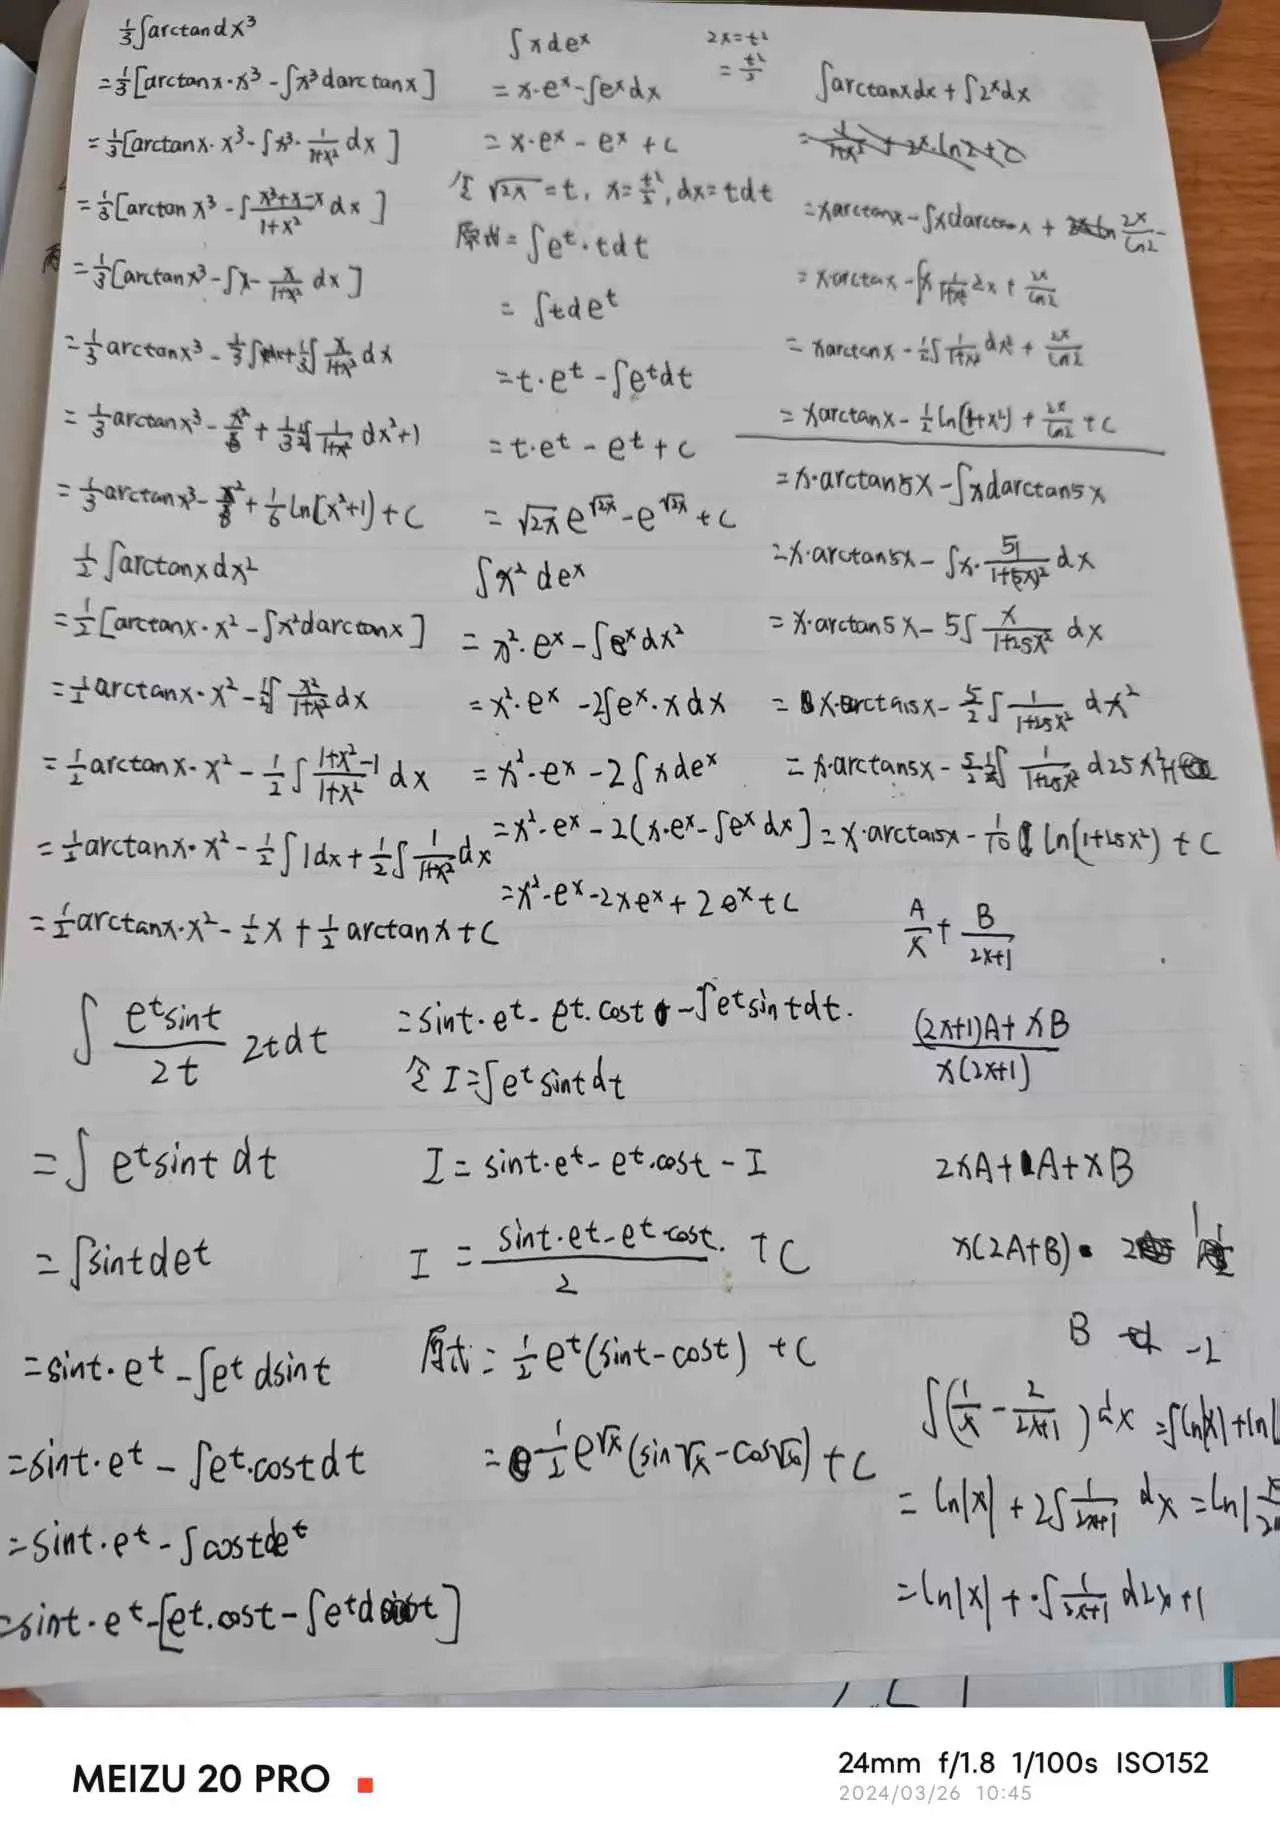 ⅓∫arctandx³
=⅓[arctanx·x³-∫x³darctanx]
=⅓[arctanx·x³-∫x³·1/(1+x²)dx]
=⅓[arctanx³-∫(x³+x-x)/(1+x²)dx]
=⅓[arctanx³-∫x-x/(1+x²)dx]
=⅓arctanx³-⅓∫xdx+⅓∫x/(1+x²)dx
=⅓arctanx³-x²/6+⅓·½∫1/(1+x²)dx²+1
=⅓arctanx³-x²/6+⅙ln(x²+1)+C
½∫arctanxdx²
=½[arctanx·x²-∫x²darctanx]
=½arctanx·x²-½∫x²/(1+x²)dx
=½arctanx·x²-½∫(1+x²-1)/(1+x²)dx
=½arctanx·x²-½∫1dx+½∫1/(1+x²)dx
=½arctanx·x²-½x+½arctanx+C
∫xdeˣ
=x·eˣ-∫eˣdx
=x·eˣ-eˣ+C
2x=t²
令√2x=t, x=t²/2, dx=tdt
原式=∫eᵗ·tdt
=∫tdeᵗ
=t·eᵗ-∫eᵗdt
=t·eᵗ-eᵗ+C
=√2x e^√2x-e^√2x+C
∫x²deˣ
=x²·eˣ-∫eˣdx²
=x²·eˣ-2∫eˣ·xdx
=x²·eˣ-2∫xdeˣ
=x²·eˣ-2(x·eˣ-∫eˣdx]
=x²·eˣ-2xeˣ+2eˣ+C
∫arctanxdx+∫2ˣdx
=xarctanx-∫xdarctanx+2ˣ/ln2
=x·arctanx-∫x 1/(1+x²)dx+2ˣ/ln2
=xarctanx-½∫1/(1+x²)dx²+2ˣ/ln2
=xarctanx-½ln(1+x²)+2ˣ/ln2+C
=x·arctan5x-∫xdarctan5x
=x·arctan5x-∫x·5/(1+(5x)²)dx
=x·arctan5x-5∫x/(1+25x²)dx
=x·arctan5x-5/2∫1/(1+25x²)dx²
=x·arctan5x-5/2·1/25∫1/(1+25x²)d25x²+1
=x·arctan5x-1/10 ln(1+25x²)+C
∫eᵗsint/2t 2tdt
=∫eᵗsintdt
=∫sintdeᵗ
=sint·eᵗ-∫eᵗdsint
=sint·eᵗ-∫eᵗ·costdt
=sint·eᵗ-∫costdeᵗ
=sint·eᵗ-[eᵗ·cost-∫eᵗdcost]
=sint·eᵗ-eᵗ·cost-∫eᵗsintdt.
令I=∫eᵗsintdt
I=sint·eᵗ-eᵗ·cost-I
I=(sint·eᵗ-eᵗ·cost)/2+C
原式=½eᵗ(sint-cost)+C
=½e^√x(sin√x-cos√x)+C
A/x+B/(2x+1)
((2x+1)A+xB)/(x(2x+1))
2xA+A+xB
x(2A+B)
B -2
∫(1/x-2/(2x+1))dx=∫ln|x|+ln
=ln|x|+2∫1/(2x+1)dx=ln|
=ln|x|+·∫1/(2x+1)d2x+1
MEIZU 20 PRO
24mm f/1.8 1/100s ISO152
2024/03/26 10:45